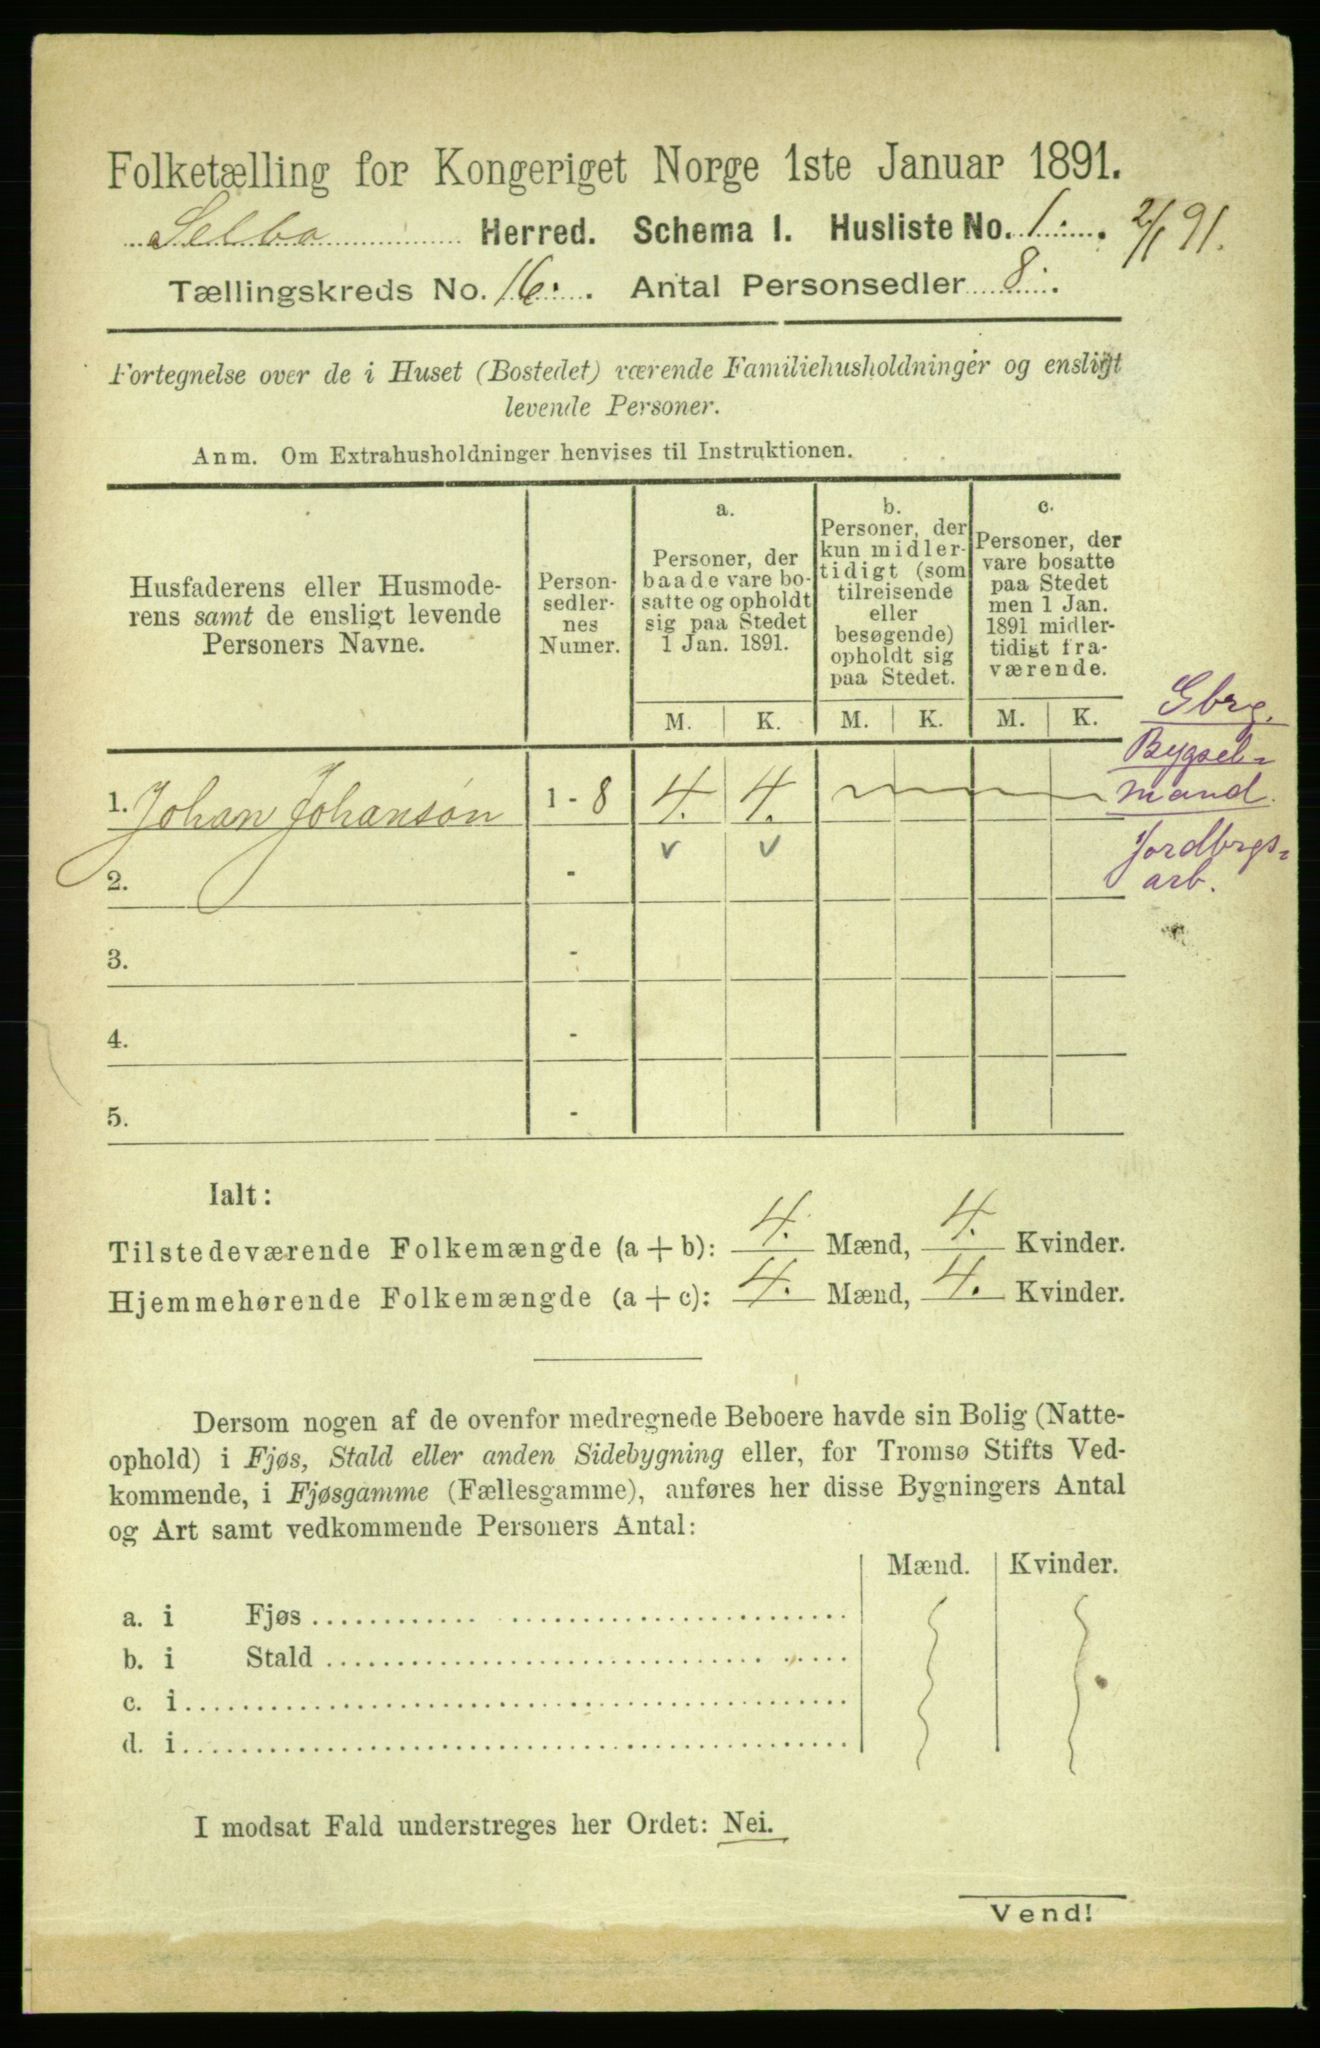 Folketælling for Kongeriget Norge 1ste Januar 1891.
Selbo Herred. Schema I. Husliste No. 1. 2/1 91.
Tællingskreds No. 16. Antal Personsedler 8.
Fortegnelse over de i Huset (Bostedet) værende Familiehusholdninger og ensligt
levende Personer.
Anm. Om Extrahusholdninger henvises til Instruktionen.
Husfaderens eller Husmode-
rens samt de ensligt levende
Personers Navne.
Person-
sedler-
nes
Numer.
a.
Personer, der
baade vare bo-
satte og opholdt
sig paa Stedet
1 Jan. 1891.
b.
Personer, der
kun midler-
tidigt (som
tilreisende
eller
besøgende)
opholdt sig
paa Stedet.
c.
Personer, der
vare bosatte
paa Stedet
men 1 Jan.
1891 midler-
tidigt fra-
værende.
M. K. M. K. M. K.
Gbrg.
Bygsel-
mand.
Jordbrgs-
arb.
1. Johan Johanson 1 - 8 4. 4.
v v
2. -
3. -
4. -
5. -
Ialt:
Tilstedeværende Folkemængde (a + b): 4. Mænd, 4. Kvinder.
Hjemmehørende Folkemængde (a + c): 4. Mænd, 4. Kvinder.
Dersom nogen af de ovenfor medregnede Beboere havde sin Bolig (Natte-
ophold) i Fjøs, Stald eller anden Sidebygning eller, for Tromsø Stifts Ved-
kommende, i Fjøsgamme (Fællesgamme), anføres her disse Bygningers Antal
og Art samt vedkommende Personers Antal:
Mænd. Kvinder.
a. i Fjøs
b. i Stald
c. i
d. i
I modsat Fald understreges her Ordet: Nei.
Vend!